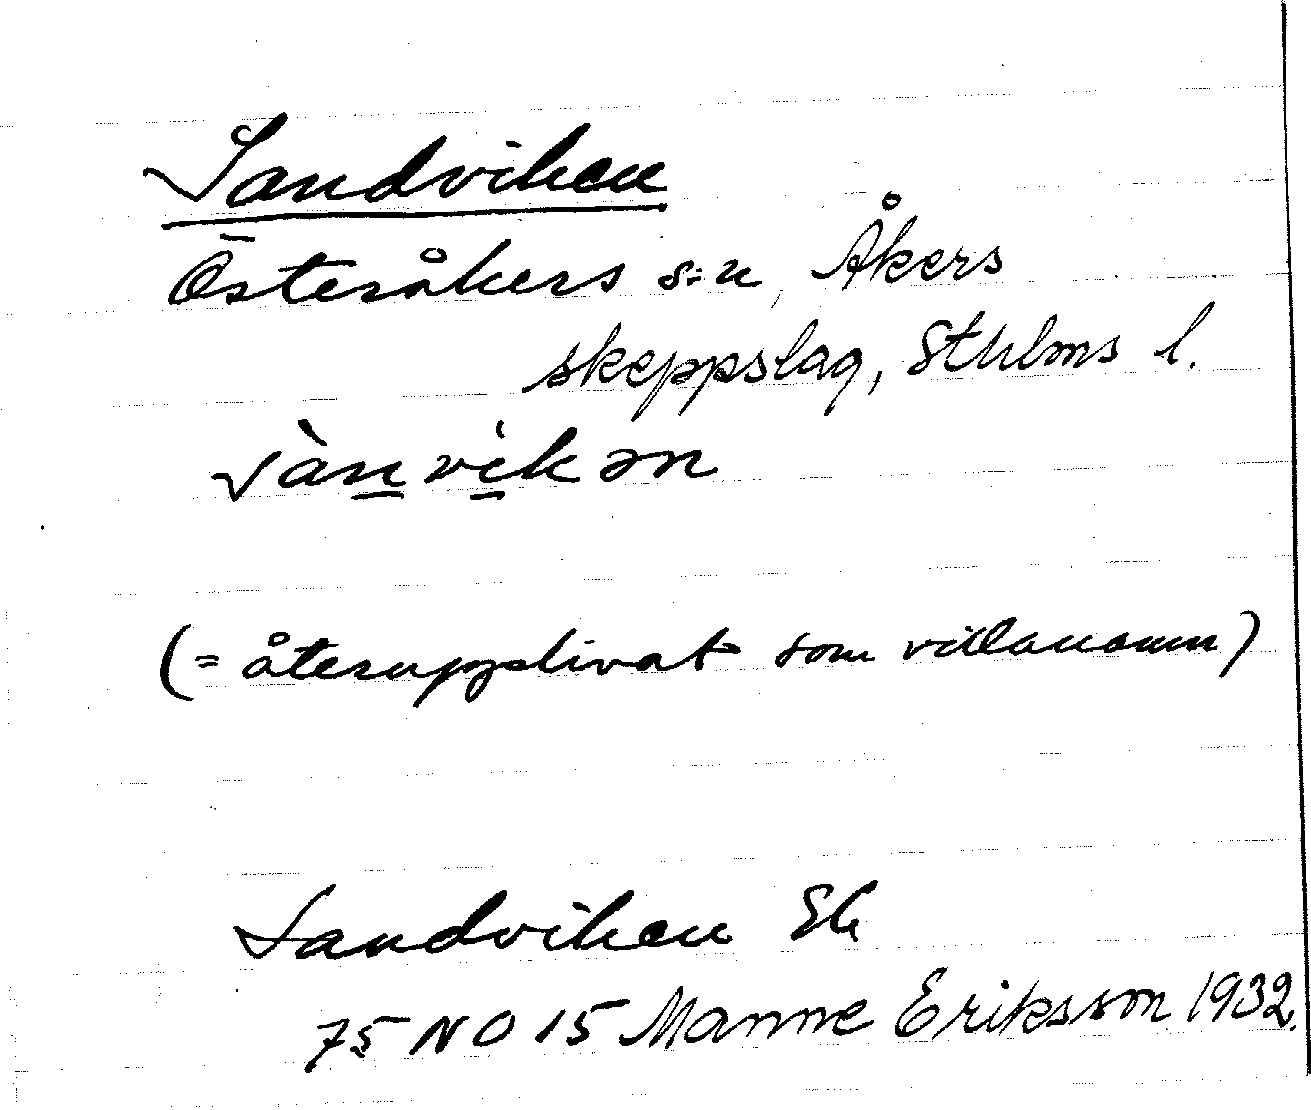 Sandviken
Österåkers s:n, Åkers
skeppslag, Sthlms l.
sànvìkən
(= återupplivat som villanamn)
Sandviken Ek
75 NO 15 Manne Eriksson 1932.